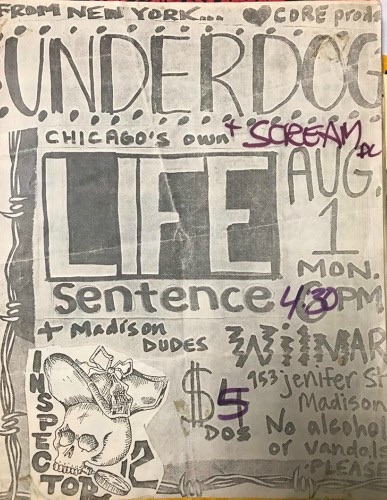 FROM NEW YORK... CORE prods
UNDERDOG
CHICAGO'S OWN + SCREAM DC
LIFE
sentence
AUG.
1
MON.
4:30 PM
+ Madison
DUDES
INSPECTOR 12
WilMAR
953 jenifer St
Madison
$5
DOZ
No alcohol
or vandals
PLEASE